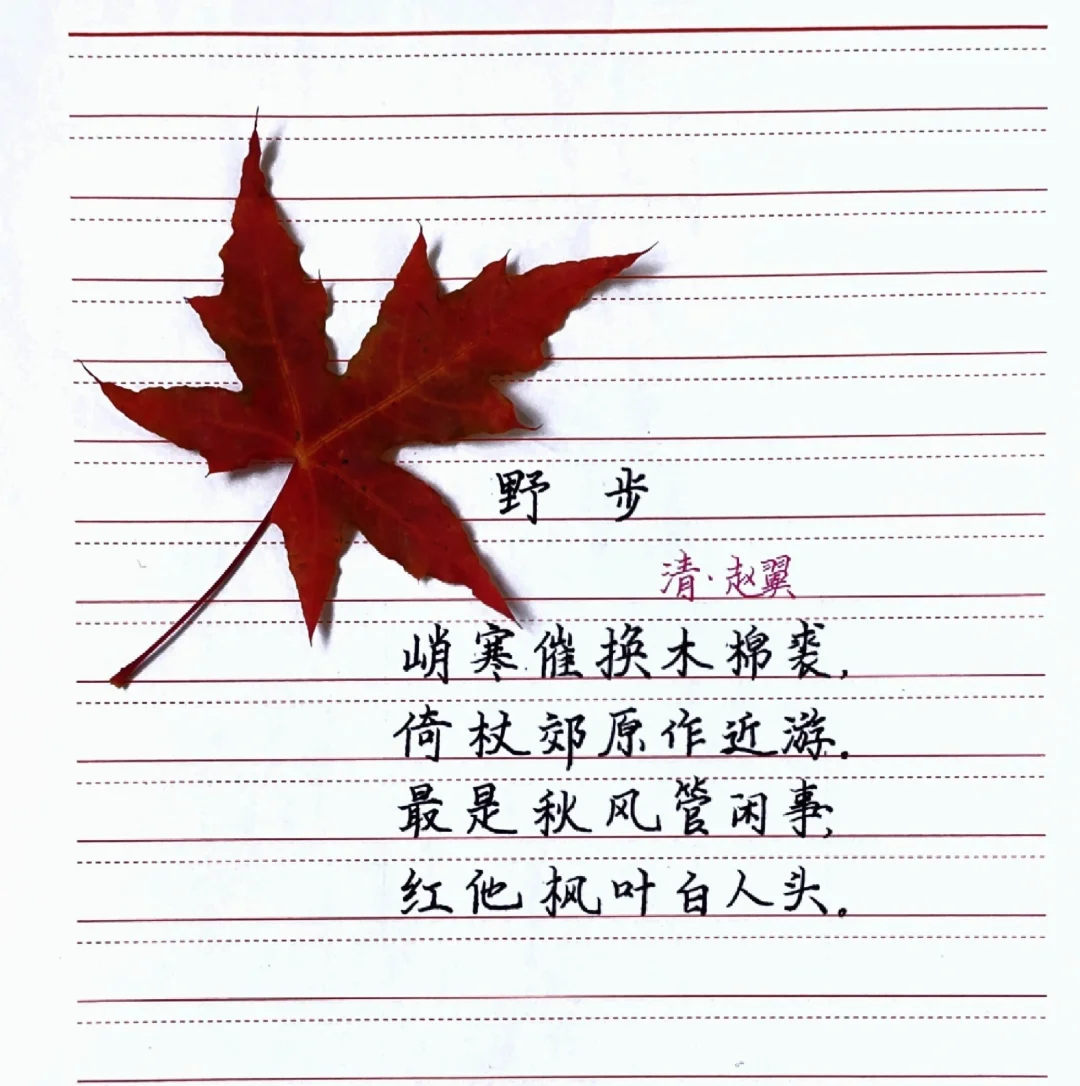 野 步
清·赵翼
峭寒催换木棉裘,
倚杖郊原作近游。
最是秋风管闲事,
红他枫叶白人头。